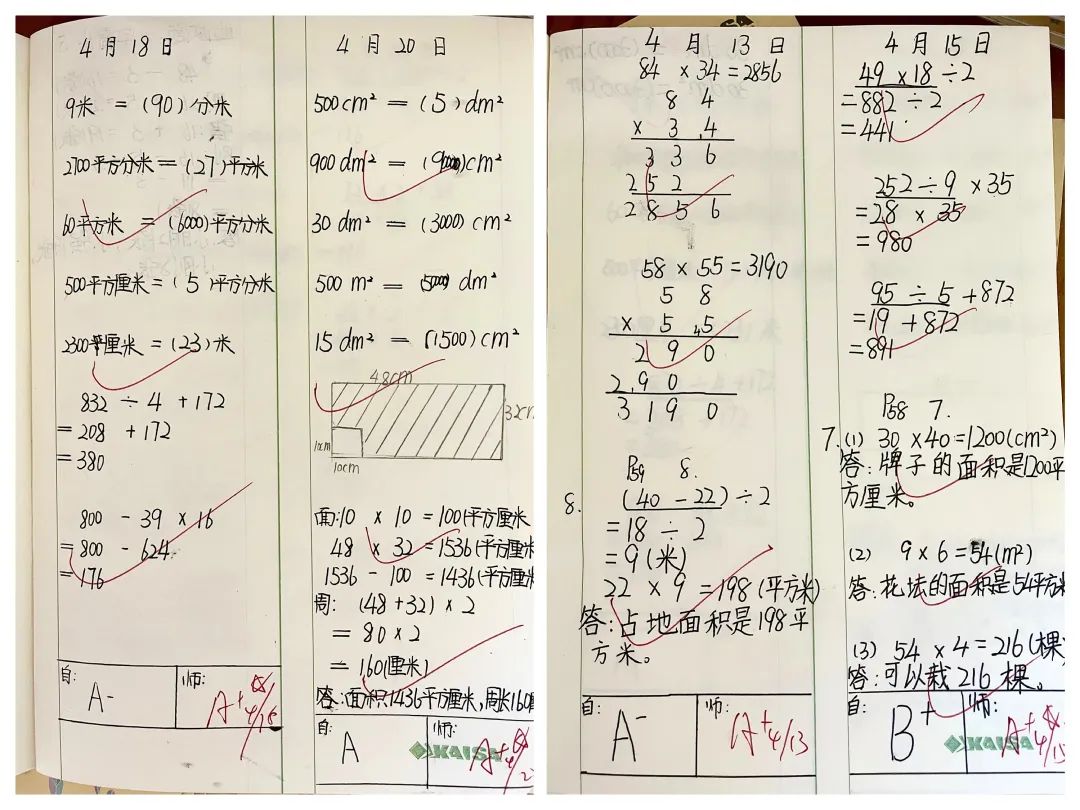 4月18日
9米 = (90)分米
2700平方分米 = (27)平方米
60平方米 = (6000)平方分米
500平方厘米 = (5)平方分米
2300厘米 = (23)米
832 ÷ 4 + 172
= 208 + 172
= 380
800 - 39 × 16
= 800 - 624
= 176
自:
A-
师:
A+
4/18
4月20日
500cm² = (5)dm²
900dm² = (9000)cm²
30dm² = (3000)cm²
500m² = (5000)dm²
15dm² = (1500)cm²
48cm
32cm
10cm
10cm
面:10 × 10 = 100(平方厘米
48 × 32 = 1536(平方厘米
1536 - 100 = 1436(平方厘米
周: (48+32) × 2
= 80×2
= 160(厘米)
答:面积1436平方厘米,周长160
自:
A
师:
A+
KAISA
4月13日
84 × 34 = 2856
8 4
× 3 4
3 3 6
2 5 2
2 8 5 6
58 × 55 = 3190
5 8
× 5 5
2 9 0
2 9 0
3 1 9 0
P59 8.
8. (40 - 22) ÷ 2
= 18 ÷ 2
= 9(米)
22 × 9 = 198(平方米)
答:占地面积是198平
方米。
自:
A-
师:
A+
4/13
4月15日
49 × 18 ÷ 2
= 882 ÷ 2
= 441
252 ÷ 9 × 35
= 28 × 35
= 980
95 ÷ 5 + 872
= 19 + 872
= 891
P58 7.
7.(1) 30 × 40 = 1200(cm²)
答:牌子的面积是1200平
方厘米。
(2) 9 × 6 = 54(m²)
答:花坛的面积是54平方米
(3) 54 × 4 = 216(棵
答:可以栽216棵。
自:
B+
师:
A+
4/15
KAISA